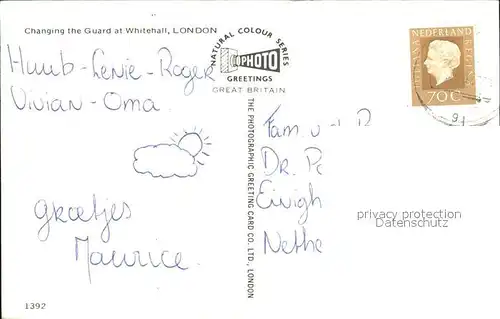 Changing the Guard at Whitehall, LONDON
Huub-Lenie-Roger
Vivian-Oma
groetjes
Maurice
1392
NATURAL COLOUR SERIES
PHOTO
GREETINGS
GREAT BRITAIN
THE PHOTOGRAPHIC GREETING CARD CO. LTD., LONDON
NEDERLAND
JULIANA REGINA
70C
91
Fam
Dr. P
Eivigh
Nethe
privacy protection
Datenschutz